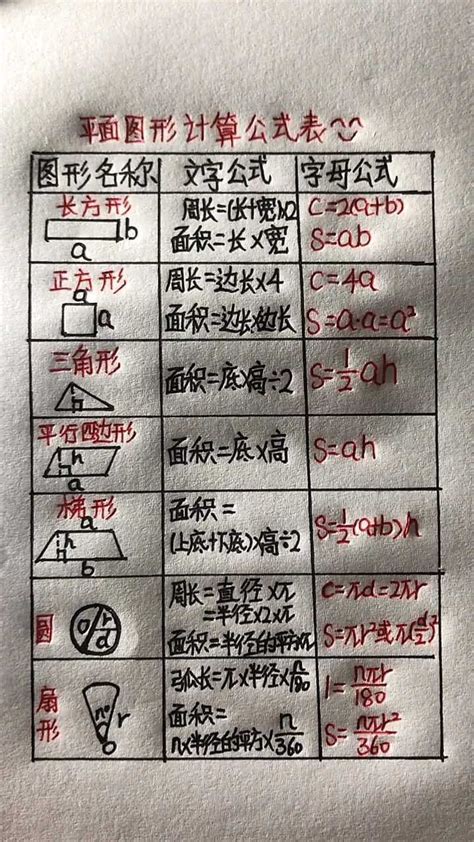 平面图形计算公式表
图形名称 文字公式 字母公式
长方形 周长=(长+宽)×2 C=2(a+b)
b 面积=长×宽 S=ab
a
正方形 周长=边长×4 C=4a
a
a 面积=边长×边长 S=a·a=a²
三角形
h 面积=底×高÷2 S=1/2ah
平行四边形
h 面积=底×高 S=ah
a
梯形 面积=
a
h (上底+下底)×高÷2 S=1/2(a+b)h
b
圆 周长=直径×π C=πd=2πr
r =半径×2×π
d 面积=半径的平方×π S=πr²或π(d/2)²
扇形 弧长=π×半径×n/180 l=nπr/180
n° r 面积=
π×半径的平方×n/360 S=nπr²/360